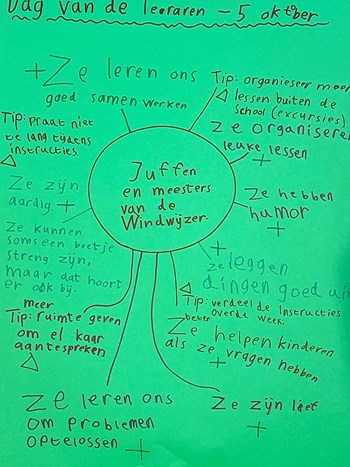 Dag van de leeraren - 5 oktober
+ Ze leren ons
goed samen werken
Tip: organiseer meer
lessen buiten de
school (excursies)
Ze organiseren
leuke lessen
+
Tip: praat niet
te lang tijdens
instructies
Juffen
en meesters
van de
Windwijzer
Ze zijn
aardig. +
Ze hebben
humor
+
Ze kunnen
soms een beetje
streng zijn,
maar dat hoort
er ook bij.
+
ze leggen
dingen goed uit
meer
Tip: ruimte geven
om el kaar
aantespreken
Tip: verdeel de instructies
beter over de week.
Ze helpen kinderen
als ze vragen hebben
+
Ze leren ons
om problemen
optelossen +
Ze zijn lief
+